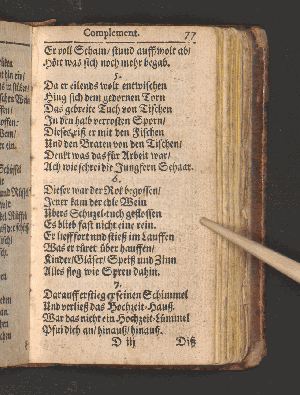 Complement. 77
Er voll Scham/ stund auff wolt ab/
Hört was sich noch mehr begab.
5.
Da er eilends wolt entwischen
Hing sich dem gedornen Torn
Das gebreite Tuch von Tischen
In den halb verrosten Sporn/
Dieses riß er mit den Fischen
Und den Braten von den Tischen/
Denckt was das für Arbeit war/
Ach wie schrei die Jungfern Schaar.
6.
Dieser war der Rok begossen/
Jener kam der edle Wein
Ubers
Es blieb fast nicht eine rein.
Er lieff fort und stieß im Lauffen
Was er rüret über hauffen/
Kinder/ Gläser/ Speiß und Zinn
Alles flog wie Spreu dahin.
7.
Darauff erstieg er seinen Schimmel
Und verließ das Hochzeit-Hauß.
War das nicht ein Hochzeit-Lümmel
Pfui dich an/ hinauß/ hinauß.
D iij Diß